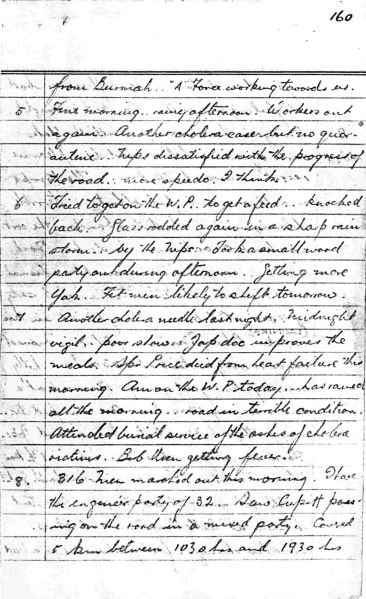 160
from Burmah. "A" Force working towards us.
5 Fine morning.. rainy afternoon. Workers out
again. Another cholera case but no quar-
antine.. Nips dissatisfied with the progress of
the road.. more speedo, I think.
6 Tried to get on the W.P. to get a feed.. knocked
back. Glass rodded again in a sharp rain
storm.. by the Nips. Took a small wood
party out during afternoon.. Getting more
Yak. Fit men likely to shift tomorrow.
7 Another cholera needle last night. Midnight
vigil.. poor stew. Jap doc improves the
meals. Spr Price died from heart failure this
morning. Am on the W.P. today.. has rained
all the morning.. road in terrible condition.
Attended burial service of the ashes of cholera
victims. Bob Uren getting fever.
8. 316 men marched out this morning. I have
the engineer party of 32.. Saw Crip H pass-
ing on the road in a mixed party. Covered
5 km between 1030 hrs and 1930 hrs